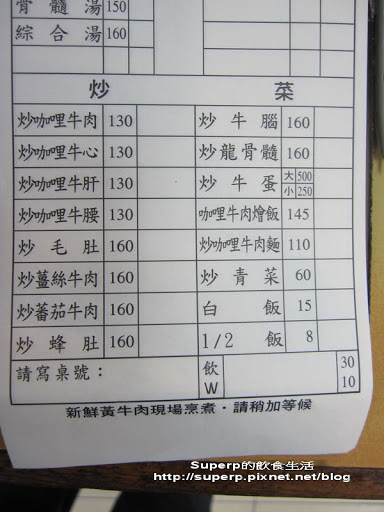 骨髓湯 150
綜合湯 160
炒菜
炒咖哩牛肉 130 炒牛腦 160
炒咖哩牛心 130 炒龍骨髓 160
炒咖哩牛肝 130 炒牛蛋 大 500 小 250
炒咖哩牛腰 130 咖哩牛肉燴飯 145
炒毛肚 160 炒咖哩牛肉麵 110
炒薑絲牛肉 160 炒青菜 60
炒蕃茄牛肉 160 白飯 15
炒蜂肚 160 1/2飯 8
請寫桌號： 飲 30
W 10
新鮮黃牛肉現場烹煮・請稍加等候
Superp的飲食生活
http://superp.pixnet.net/blog